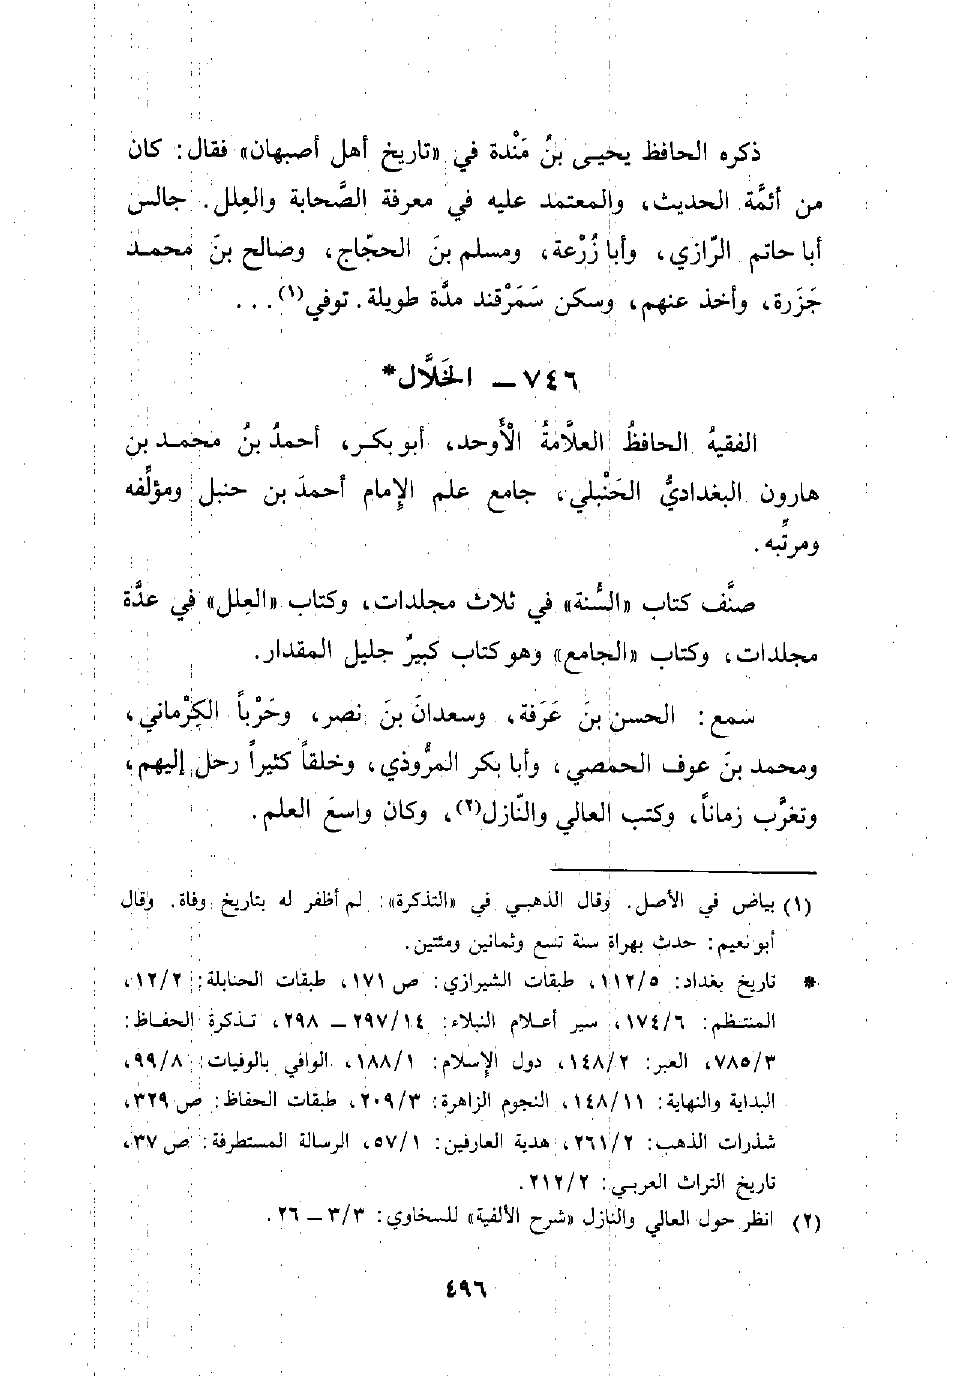 ذكره الحافظ يحيـى بنُ مَنْدة في «تاريخ أهل أصبهان» فقال: كان
من أئمَّة الحديث، والمعتمد عليه في معرفة الصَّحابة والعِلل. جالس
أبا حاتم الرّازي، وأبا زُرْعة، ومسلم بنَ الحجّاج، وصالح بنَ محمـد
جَزَرة، وأخذ عنهم، وسكن سَمَرْقند مدَّة طويلة. توفي(١) ...
٧٤٦ ــ الخَلاَّل*
الفقيهُ الحافظُ العلاَّمةُ الأَوحد، أبو بكـر، أحمدُ بنُ محمـد بن
هارون البغداديُّ الحَنْبلي، جامع علم الإِمام أحمدَ بن حنبل ومؤلِّفه
ومرتِّبه.
صنَّف كتاب «السُّنة» في ثلاث مجلدات، وكتاب «العِلل» في عدَّة
مجلدات، وكتاب «الجامع» وهو كتاب كبيرٌ جليل المقدار.
سمع: الحسن بنَ عَرَفة، وسعدانَ بنَ نصر، وحَرْباً الكِرْماني،
ومحمد بنَ عوف الحمصي، وأبا بكر المرُّوذي، وخلقاً كثيراً رحل إليهم،
وتغرَّب زماناً، وكتب العالي والنّازل(٢)، وكان واسعَ العلم.
(١) بياض في الأصل. وقال الذهبـي في «التذكرة»: لم أظفر له بتاريخ وفاة. وقال
أبو نعيم: حدث بهراة سنة تسع وثمانين ومئتين.
* تاريخ بغداد: ١١٢/٥، طبقات الشيرازي: ص ١٧١، طبقات الحنابلة: ١٢/٢،
المنتـظم: ١٧٤/٦، سير أعـلام النبلاء: ٢٩٧/١٤ ــ ٢٩٨، تـذكرة الحفـاظ:
٧٨٥/٣، العبر: ١٤٨/٢، دول الإِسلام: ١٨٨/١، الوافي بالوفيات: ٩٩/٨،
البداية والنهاية: ١٤٨/١١، النجوم الزاهرة: ٢٠٩/٣، طبقات الحفاظ: ص ٣٢٩،
شذرات الذهب: ٢٦١/٢، هدية العارفين: ٥٧/١، الرسالة المستطرفة: ص ٣٧،
تاريخ التراث العربـي: ٢١٢/٢.
(٢) انظر حول العالي والنازل «شرح الألفية» للسخاوي: ٣/٣ ــ ٢٦.
٤٩٦